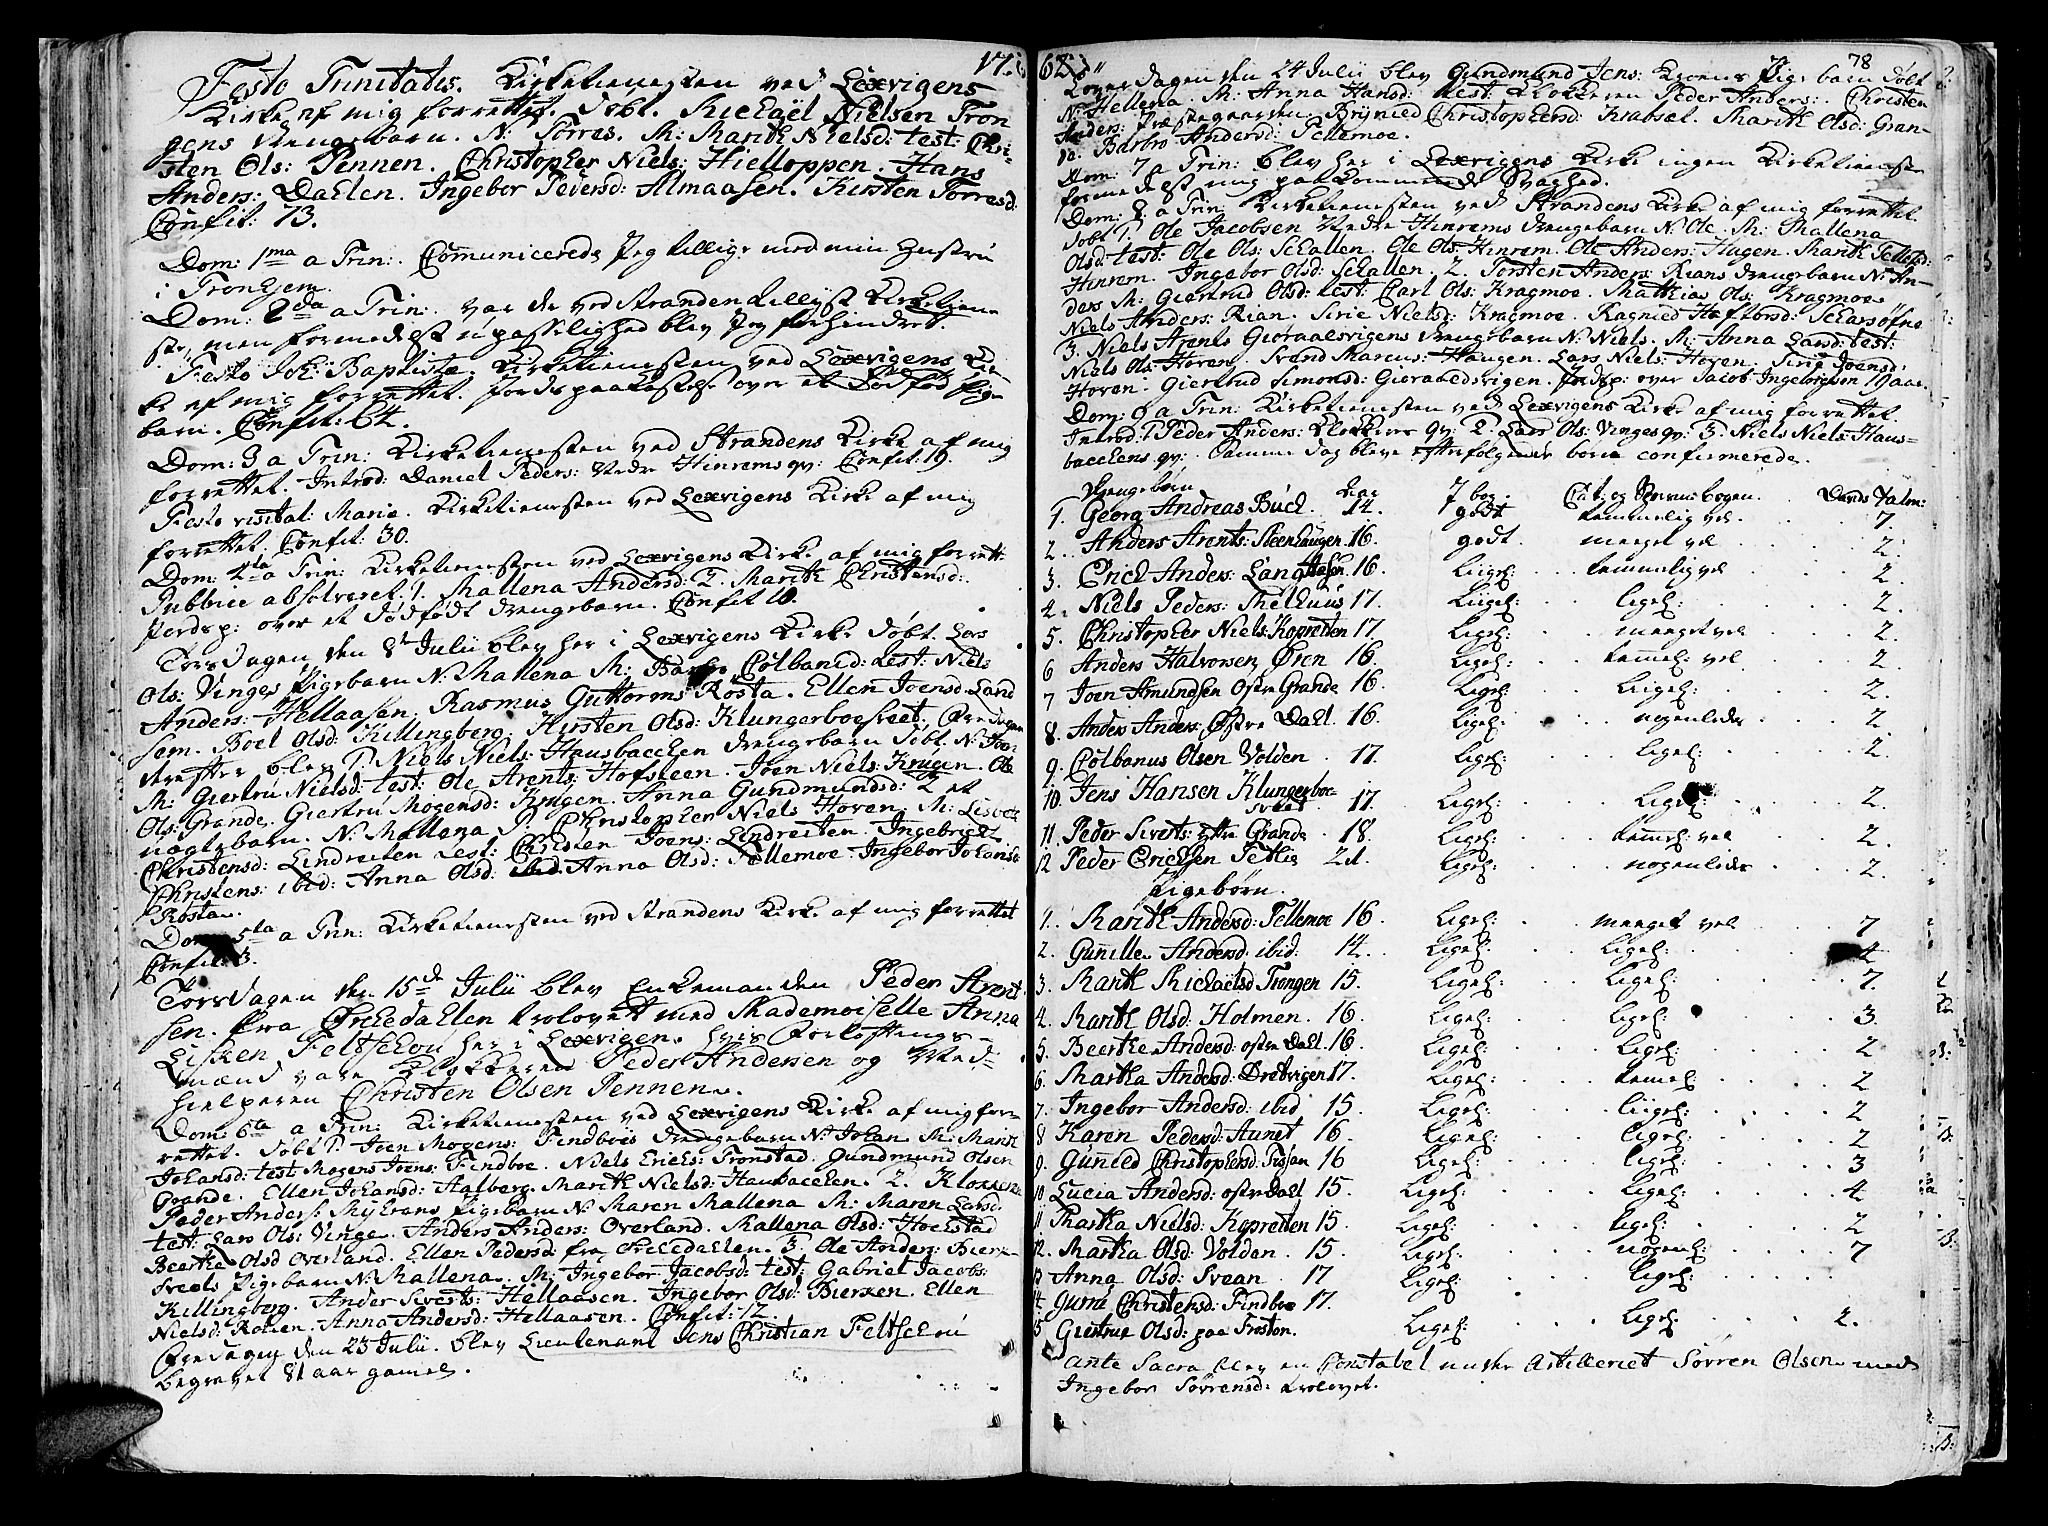 17
Festo Trinitatis. Kirketienesten ved Lexvigens
Kirke af mig forrettet. Døbt. Michaël Nielsen Tron
gens drengebarn. N: Torres. M: Marith Nielsd: test: Chri-
sten Ols: Pennen. Christopher Niels: Hielloppen. Hans
Anders: Daelen. Ingebor Pedersd: Almaasen. Kirsten Torresd:
Confit: 73.
Dom: 1ma a Trin: Comunicerede Jeg tillige med min Hustru
i Tronhiem.
Dom: 2da a Trin: var de ved Stranden tillyst Kirketiene
ste, men formedelst upasselighed blev Jeg forhindret.
Festo Joh: Baptistæ. Kirketienesten ved Lexvigens Kir-
ke af mig forrettet. Jords paakastelse over et dødfød Pige
barn. Confit: 64.
Dom: 3 a Trin: Kirketienesten ved Strandens Kirke af mig
forrettet. Introd: Daniel Peders: Vedre Hinrems qv: Confit: 19.
Festo visitat: Mariæ. Kirketienesten ved Lexvigens Kirke af mig
forrettet. Confit: 30.
Dom: 4ta a Trin: Kirketienesten ved Lexvigens Kirke af mig forrett:
Publice absolveret 1. Mallena Andersd: 2. Marith Christensd:
Jordsp: over et dødfødt drengebarn. Confit 10.
Torsdagen den 8de Julii blev her i Lexvigens Kirke døbt. Lars
Ols: Vinges Pigebarn N: Mallena M: Barbro Colbanid: test: Niels
Anders: Hellaasen. Rasmus Guttorms Røsta. Ellen Joensd: Land
sem. Boel Olsd: Killingberg. Kirsten Olsd: Klungerboesveet. Fredagen
derefter blev 1. Niels Niels: Hausbacchen drengebarn døbt. N: Joen
M: Giertru Nielsd: test: Ole Arents: Hofsteen. Joen Niels: Krugen. Ole
Ols: Grande. Giertru Mogensd: Krugen. Anna Gundmundsd: 2 et
uægtebarn N: Mallena P: Christopher Niels Hoven. M: Lisbeth
Christensd: Lindreiten test: Christen Joens: Lindreiten. Ingebricht
Christens: ibid: Anna Olsd: ibid. Anna Olsd: Tellemoe. Ingebor Johansd:
Røsta.
Dom: 5ta a Trin: Kirketienesten ved Strandens Kirke af mig forrettet
Confit: 3.
Torsdagen den 15de Julii blev Enkemanden Peder Arent
sen. fra Ørkedahlen trolovet med Mademoiselle Anna
Lisken Feltschou her i Lexvigen. hvis Forløftnings-
mænd vare Klokkeren Peder Andersen og Med-
hielperen Christen Olsen Pennen.
Dom: 6ta a Trin: Kirketienesten ved Lexvigens Kirke af mig for-
rettet. Døbt 1. Joen Mogens: Findboes drengebarn N: Johan M: Marit
Johansd: test Mogens Joens: Findboe. Niels Erichs: Tronstad. Gundmund Olsen
Grande. Ellen Johansd: Aalberg. Marith Nielsd: Hausbacchen. 2. Klokkeren
Peder Anders: Myhrans Pigebarn N: Maren Mallena M: Maren Larsd:
test: Lars Ols: Vinge. Anders Anders: Overland. Mallena Olsd: Hochstad
Beerthe Olsd Overland. Ellen Pedersd fra Ørkedahlen. 3. Ole Anders: Bierke-
sveets Pigebarn N: Mallena. M: Ingebor Jacobsd: test: Gabriel Jacobs:
Killingberg. Ander Siverts: Hellaasen. Ingebor Olsd: Bierken. Ellen
Nielsd: Roten. Anna Andersd: Hellaasen. Confit: 12.
Fredagen den 23 Julii. blev Lieutenant Jens Christian Feltschou
begravet 81 aar gamel.
62
78
Løverdagen den 24 Julii blev Gundmund Jens: Pigebarn døbt
N: Hellena. M: Anna Hansd: test: Klokkeren Peder Anders: Christen
Anders: Præstegaarden. Brynild Christophersd: Krabsæt. Marith Olsd: Gran-
de. Barbro Andersd: Tellemoe.
Dom: 7 a Trin: blev her i Lexvigens Kirke ingen Kirketieneste
formedelst mig paakommende Svaghed.
Dom: 8 a Trin: Kirketienesten ved Strandens Kirke af mig forrettet.
døbt 1. Ole Jacobsen Vedre Hinrems drengebarn N: Ole. M: Mallena
Olsd: test: Ole Ols: Schallen. Ole Ols: Hinrem. Ole Anders: Hagen. Marith Tellefsd:
Hinrem. Ingebor Olsd: Schallen. 2. Torsten Anders: Rians drengebarn N: An-
ders M: Giertrud Olsd: test: Carl Ols: Kragmoe. Mathias Ols: Kragmoe
Niels Anders: Rian. Sirie Nielsd: Kragmoe. Ragnild Hafforsd: Scharsøfne
3. Niels Arents Gioraaesvigens drengebarn N: Niels. M: Anna Larsd: test:
Niels Ols: Hoven. Svend Marcus: Haugen. Lars Niels: Hoven. Siri Joensd:
Hoven. Giertrud Simonsd: Gioraaedsvigen. Jordsp: over Jacob Ingebrigtsen 19 aar.
Dom: 9 a Trin: Kirketienesten ved Lexvigens Kirke af mig forrettet
Introd: 1. Peder Anders: Klokkers qv: 2. Lars Ols: Vinges qv: 3. Niels Niels: Haus-
bacchens qv: Samme dag bleve efterfølgende børn confirmerede.
Drengebørn Aar J bog. Cat: og Børnebogen. Davids Psalm:
1. Georg Andreas Buch. 14. godt temmelig vel. 7.
2. Anders Arents: Steenhaugen 16. godt. meeget vel 2.
3. Erich Anders: Langaasen 16. liigel: temmelig vel 2.
4. Niels Peders: Thelhuus 17. liigel: ligel: 2.
5. Christopher Niels: Kopreiten 17 ligel: meeget vel 2.
6 Anders Halvorsen Øren 16. ligel: temel: vel 2.
7 Joen Amundsen Ostre Grande 16. ligel: liigel: 2.
8. Anders Anders: Østre Dahl 16. ligel: nogenledes 2
9. Colbanus Olsen Volden 17. ligel: ligel: 2.
10. Jens Hansen Klungerboe-
sveet 17. ligel: ligel: 2.
11. Peder Siverts: yttre Grande 18. ligel: temel: vel 2.
12 Peder Erichsen Tethe 21. ligel: nogenledes 2.
Pigebørn.
1. Marith Andersd: Tellemoe 16. ligel: meeget vel 7
2. Gunille Andersd: ibid: 14. ligel: ligel: 4
3. Marith Michaëlsd Trongen 15. ligel: ligel: 7.
4. Marith Olsd: Holmen. 16. ligel: ligel: 3.
5. Beerthe Andersd: ostre Dahl 16. ligel: ligel: 2
6. Martha Andersd: Dretvigen 17. ligel: temel 2
7. Ingebor Andersd: ibid 15. ligel: liigel: 2
8 Karen Pedersd: Aunet 16. ligel: ligel: 2
9. Gunild Christophersd: Tissan 16 ligel: ligel: 3
10 Lucia Andersd: ostre Dahl 15. ligel: ligel: 4
11 Martha Nielsd: Kopreiten 15. ligel: ligel: 2
12. Martha Olsd: Voldan. 15. ligel: nogenl: 7
13 Anna Olsd: Svean. 17 ligel: ligel:
14. Guru Christensd: Findboe 17.
15 Giertrue Olsd: paa Froston. ligel: ligel: 2.
Ante Sacra blev en Constabel under Artilleriet Sørren Olsen med
Ingebor Sørrensd: trolovet.